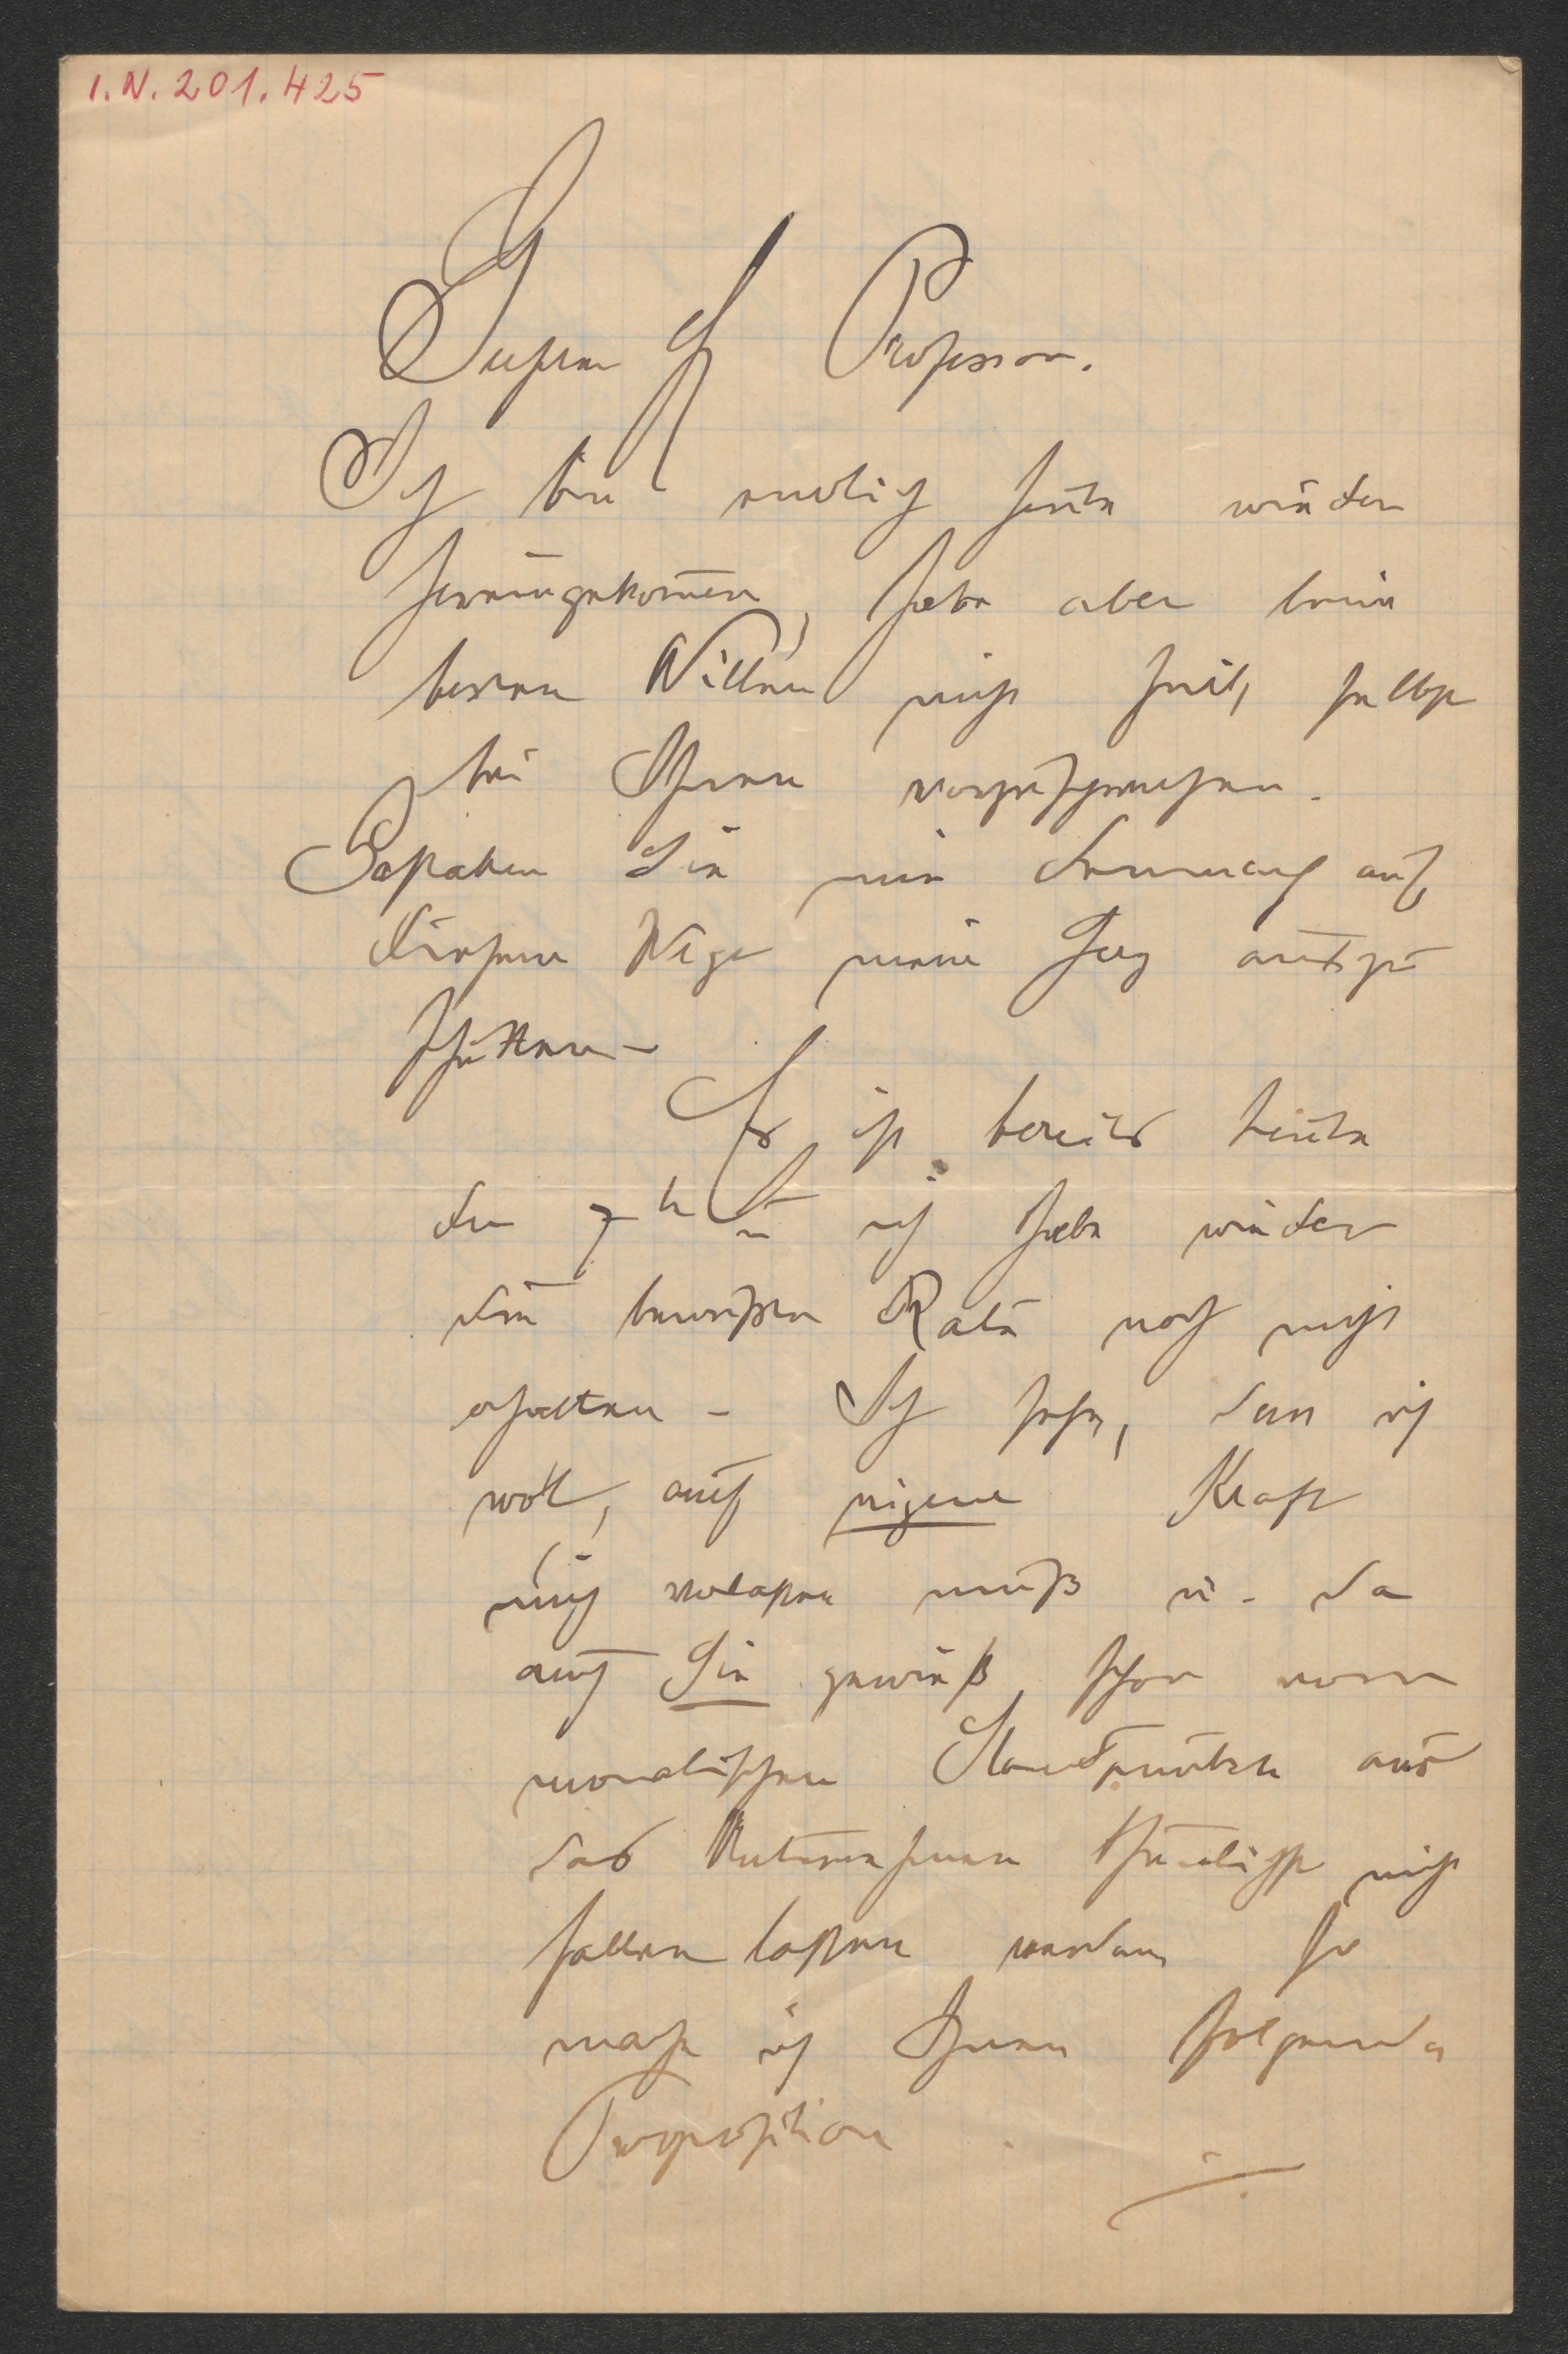 I.N. 201.425
Lieber H Professor.
Ich bin endlich heute wieder
hereingekommen, habe aber beim
besten Willen nicht Zeit, selbst
bei Ihnen vorzusprechen.
Gestatten Sie mir demnach auf
diesem Wege mein Herz auszu
schütten –
Es ist bereits heute
der 7te u ich habe wieder
die bewußte Rate noch nicht
erhalten – Ich sehe, daß ich
wol, auf eigene Kraft
mich verlassen muß u. da
auch Sie gewiß schon vom
moralischen Standpunkte aus
das Unternehmen thunlichst nicht
fallen lassen werden so
mache ich Ihnen folgende
Proposition